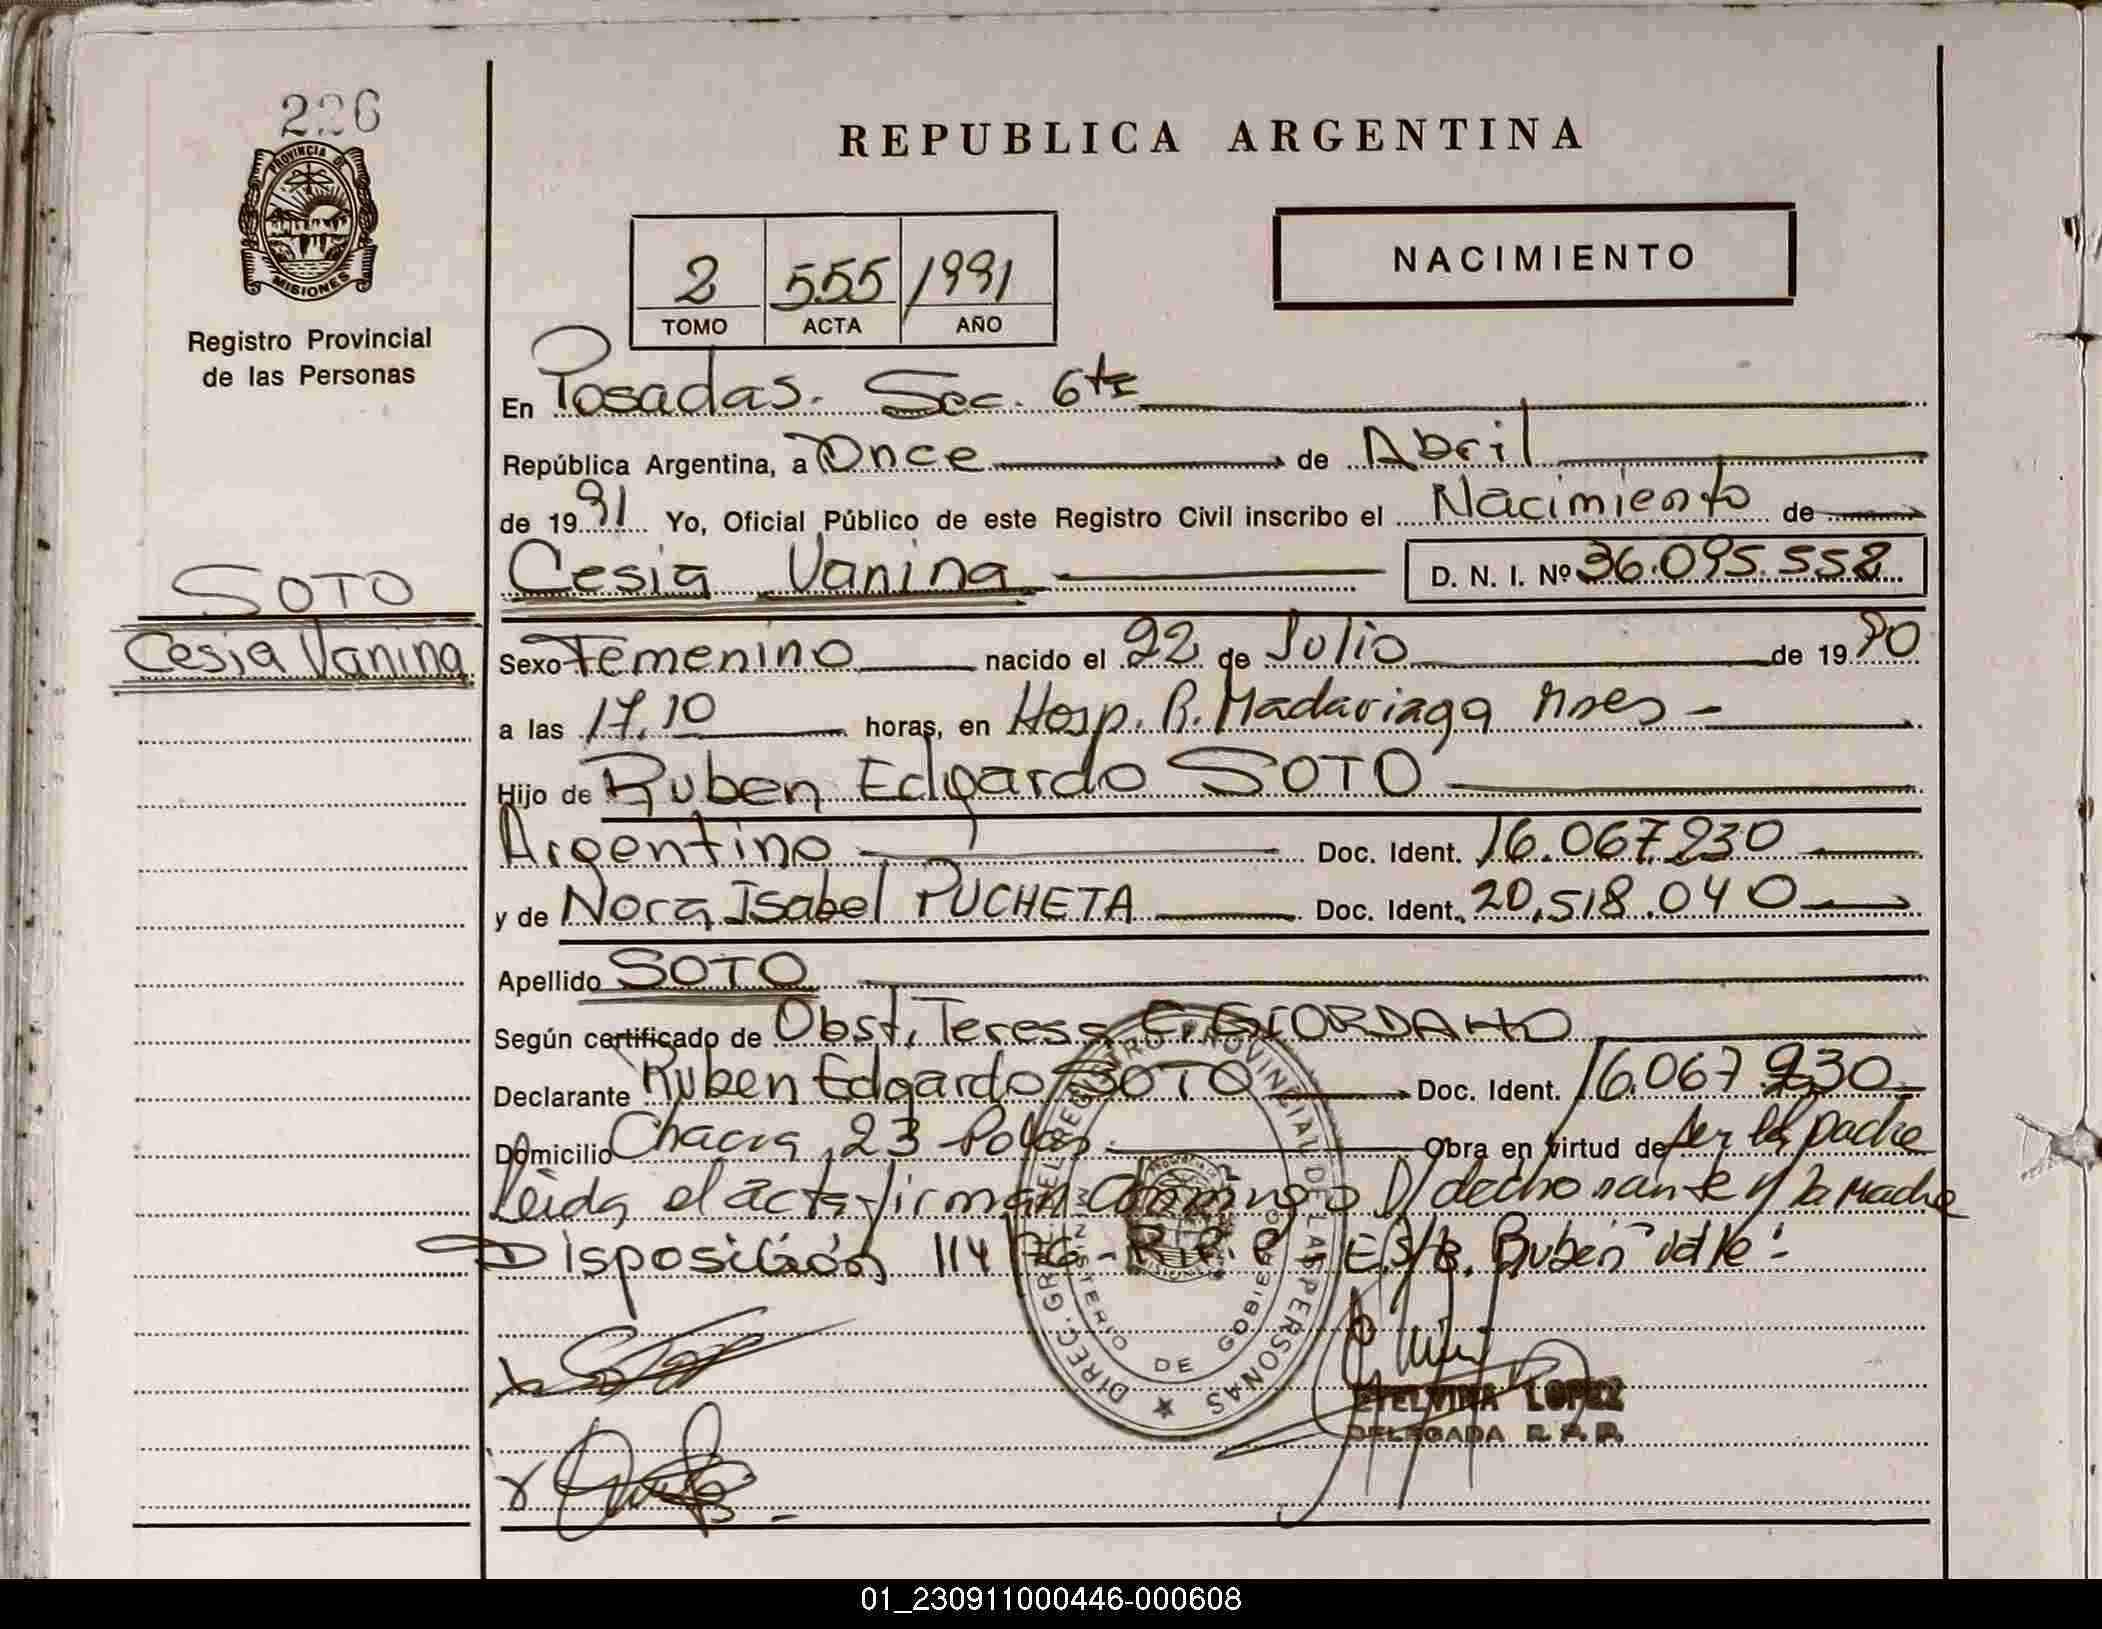 226
PROVINCIA DE
MISIONES
Registro Provincial
de las Personas
SOTO
Cesia Vanina
REPUBLICA ARGENTINA
2 555 1991
TOMO ACTA AÑO
NACIMIENTO
En Posadas. Sec. 6ta
República Argentina, a Once de Abril
de 1991 Yo, Oficial Público de este Registro Civil inscribo el Nacimiento de
Cesia Vanina D. N. I. Nº 36.095.552
Sexo Femenino nacido el 22 de Julio de 1990
a las 17.10 horas, en Hosp. R. Madariaga
Hijo de Ruben Edgardo SOTO
Argentino Doc. Ident. 16.067.230
y de Nora Isabel PUCHETA Doc. Ident. 20.518.040
Apellido SOTO
Según certificado de Obst. Teresa C. GIORDANO
Declarante Ruben Edgardo SOTO Doc. Ident. 16.067.230
Domicilio Chacra 23 Obra en virtud de ser el padre
Leida el acta firman conmigo y la Madre
Disposición 114/76 - R.P.P. E/B. Ruben vale:
DIREC. GRAL. DEL REGISTRO PROVINCIAL DE LAS PERSONAS
MINISTERIO DE GOBIERNO
ETELVINA LOPEZ
DELEGADA R. P. P.
01_230911000446-000608